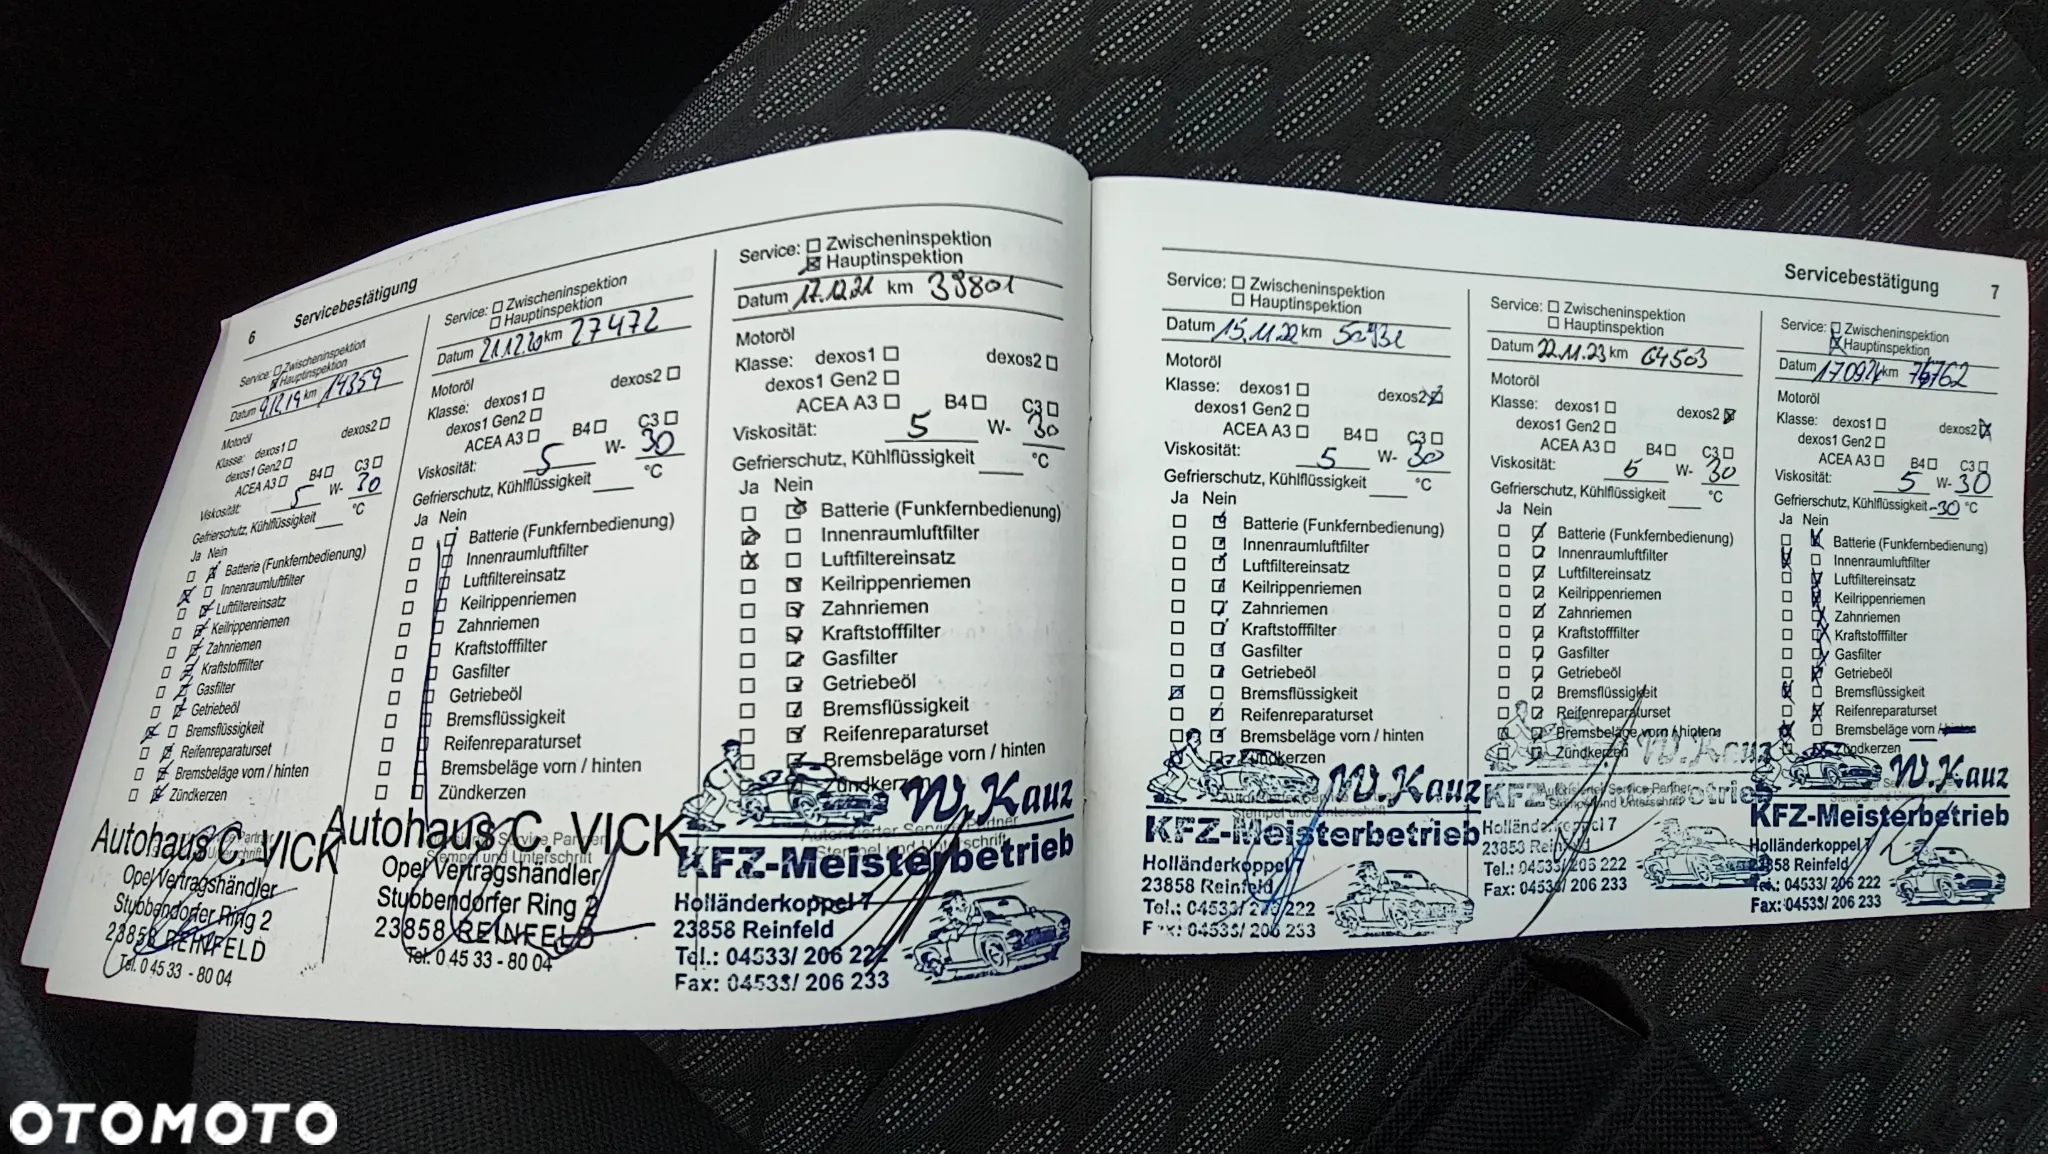 6
Servicebestätigung
Service: Zwischeninspektion
Hauptinspektion
Datum 9.12.19 km 14359
Motoröl
Klasse: dexos1 dexos2
dexos1 Gen2
ACEA A3 B4 C3
Viskosität: 5 W- 30
Gefrierschutz, Kühlflüssigkeit °C
Ja Nein
Batterie (Funkfernbedienung)
Innenraumluftfilter
Luftfiltereinsatz
Keilrippenriemen
Zahnriemen
Kraftstofffilter
Gasfilter
Getriebeöl
Bremsflüssigkeit
Reifenreparaturset
Bremsbeläge vorn / hinten
Zündkerzen
Autohaus C. VICK
Opel Vertragshändler
Stubbendorfer Ring 2
23858 REINFELD
Tel. 0 45 33 - 80 04
Service: Zwischeninspektion
Hauptinspektion
Datum 21.12.20 km 27472
Motoröl
Klasse: dexos1 dexos2
dexos1 Gen2
ACEA A3 B4 C3
Viskosität: 5 W- 30
Gefrierschutz, Kühlflüssigkeit °C
Ja Nein
Batterie (Funkfernbedienung)
Innenraumluftfilter
Luftfiltereinsatz
Keilrippenriemen
Zahnriemen
Kraftstofffilter
Gasfilter
Getriebeöl
Bremsflüssigkeit
Reifenreparaturset
Bremsbeläge vorn / hinten
Zündkerzen
Autohaus C. VICK
Service Partner
Stempel und Unterschrift
Opel Vertragshändler
Stubbendorfer Ring 2
23858 REINFELD
Tel. 0 45 33 - 80 04
Service: Zwischeninspektion
Hauptinspektion
Datum 17.12.21 km 39801
Motoröl
Klasse: dexos1 dexos2
dexos1 Gen2
ACEA A3 B4 C3
Viskosität: 5 W- 30
Gefrierschutz, Kühlflüssigkeit °C
Ja Nein
Batterie (Funkfernbedienung)
Innenraumluftfilter
Luftfiltereinsatz
Keilrippenriemen
Zahnriemen
Kraftstofffilter
Gasfilter
Getriebeöl
Bremsflüssigkeit
Reifenreparaturset
Bremsbeläge vorn / hinten
Zündkerzen
W. Kauz
Autorisierter Service Partner
Stempel und Unterschrift
KFZ-Meisterbetrieb
Holländerkoppel 7
23858 Reinfeld
Tel.: 04533/ 206 222
Fax: 04533/ 206 233
Servicebestätigung
7
Service: Zwischeninspektion
Hauptinspektion
Datum 15.11.22 km
Motoröl
Klasse: dexos1 dexos2
dexos1 Gen2
ACEA A3 B4 C3
Viskosität: 5 W- 30
Gefrierschutz, Kühlflüssigkeit °C
Ja Nein
Batterie (Funkfernbedienung)
Innenraumluftfilter
Luftfiltereinsatz
Keilrippenriemen
Zahnriemen
Kraftstofffilter
Gasfilter
Getriebeöl
Bremsflüssigkeit
Reifenreparaturset
Bremsbeläge vorn / hinten
Zündkerzen
W. Kauz
Stempel und Unterschrift
KFZ-Meisterbetrieb
Holländerkoppel 7
23858 Reinfeld
Tel.: 04533/ 206 222
Fax: 04533/ 206 233
Service: Zwischeninspektion
Hauptinspektion
Datum 22.11.23 km 64503
Motoröl
Klasse: dexos1 dexos2
dexos1 Gen2
ACEA A3 B4 C3
Viskosität: 5 W- 30
Gefrierschutz, Kühlflüssigkeit °C
Ja Nein
Batterie (Funkfernbedienung)
Innenraumluftfilter
Luftfiltereinsatz
Keilrippenriemen
Zahnriemen
Kraftstofffilter
Gasfilter
Getriebeöl
Bremsflüssigkeit
Reifenreparaturset
Bremsbeläge vorn / hinten
Zündkerzen
W. Kauz
Autorisierter Service Partner
Stempel und Unterschrift
Holländerkoppel 7
23858 Reinfeld
Tel.: 04533/ 206 222
Fax: 04533/ 206 233
Service: Zwischeninspektion
Hauptinspektion
Datum 17.09.24 km 76762
Motoröl
Klasse: dexos1 dexos2
dexos1 Gen2
ACEA A3 B4 C3
Viskosität: 5 W- 30
Gefrierschutz, Kühlflüssigkeit -30 °C
Ja Nein
Batterie (Funkfernbedienung)
Innenraumluftfilter
Luftfiltereinsatz
Keilrippenriemen
Zahnriemen
Kraftstofffilter
Gasfilter
Getriebeöl
Bremsflüssigkeit
Reifenreparaturset
Bremsbeläge vorn / hinten
Zündkerzen
W. Kauz
KFZ-Meisterbetrieb
Holländerkoppel 7
23858 Reinfeld
Tel.: 04533/ 206 222
Fax: 04533/ 206 233
OTOMOTO